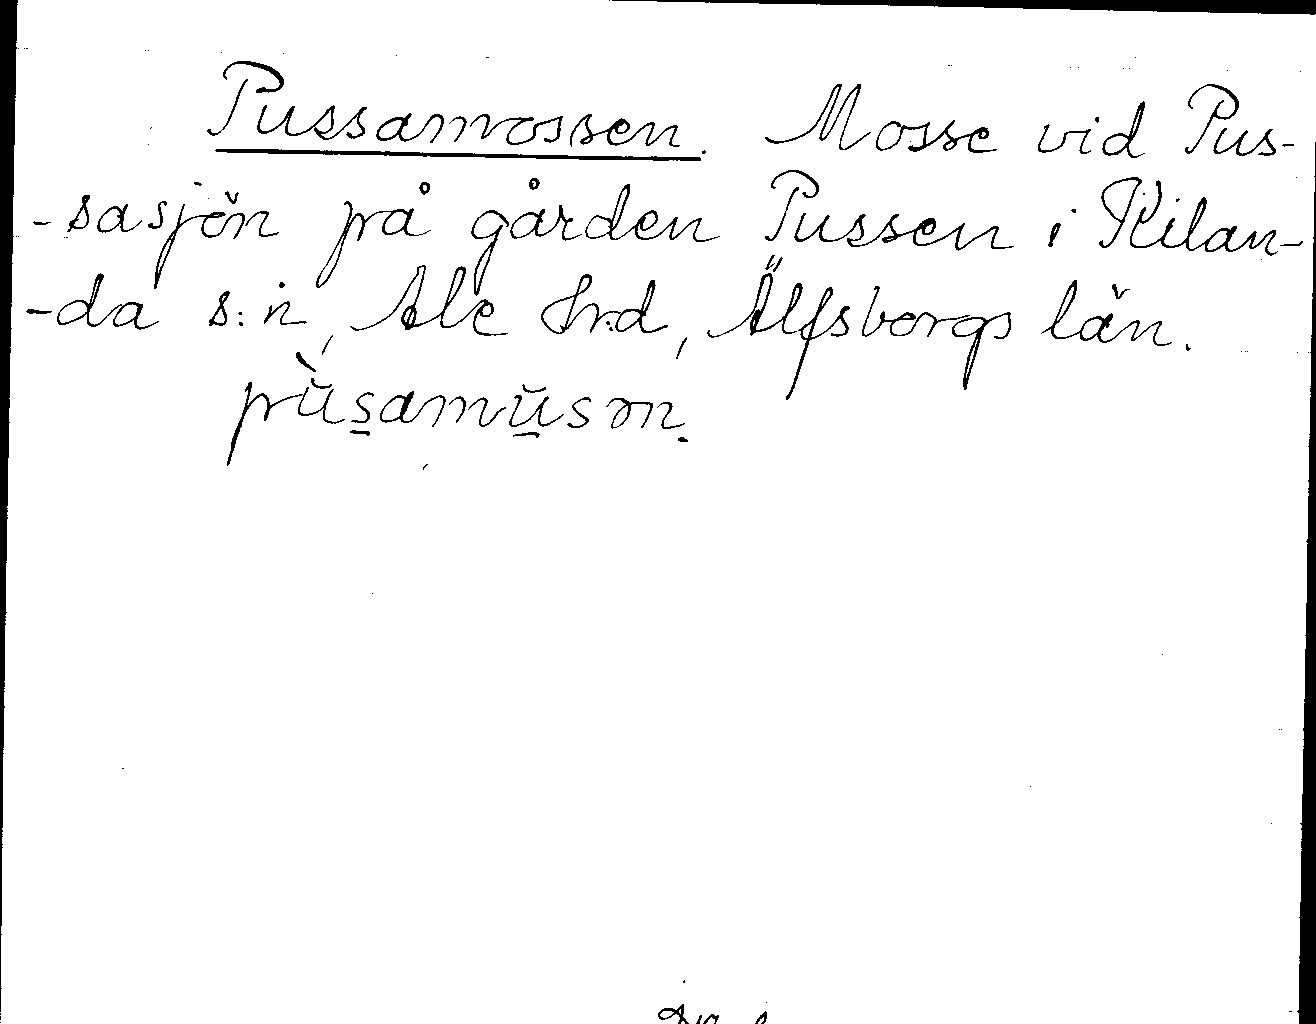 Pussamossen. Mosse vid Pus-
-sasjön på gården Pussen i Kilan-
-da s:n, Ale Hr:d, Älfsborgs län.
pŭ̀s̱amŭ̱sən.